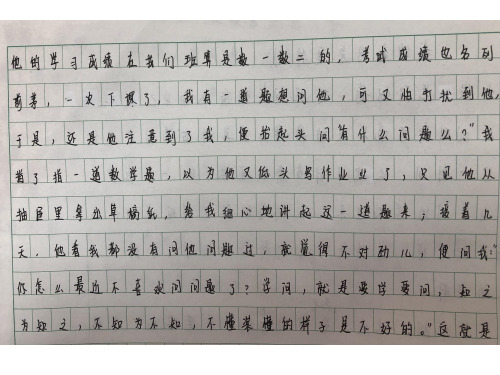 他的学习成绩在我们班算是数一数二的，考试成绩也名列
前茅，一次下课了，我有一道题想问他，可又怕打扰到他，
于是，还是他注意到了我，便抬起头问“有什么问题么？”我
指了指一道数学题，以为他又低头写作业业了，只见他从
抽屉里拿出草稿纸，给我细心地讲起这一道题来；接着几
天，他看我都没有问他问题过，就觉得不对劲儿，便问我：“
你怎么最近不喜欢问问题了？学问，就是要学要问，知之
为知之，不知为不知，不懂装懂的样子是不好的。”这就是